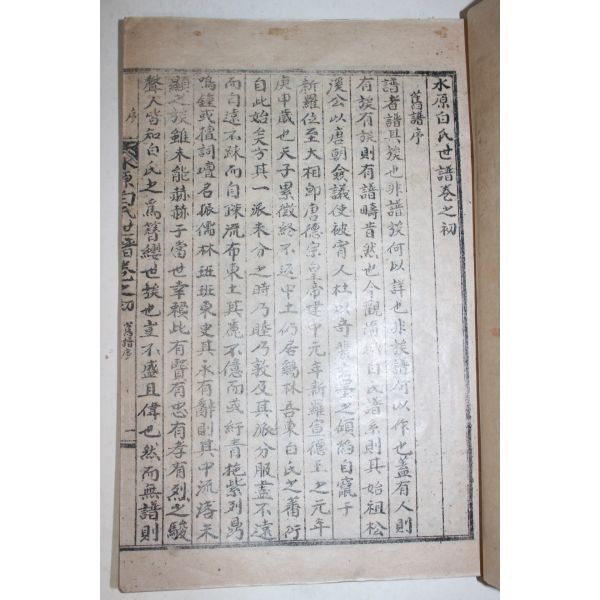 水原白氏世譜卷之初
舊譜序
譜者譜其族也非譜族何以詳也非族譜何以作也蓋有人則
有族有族則有譜疇昔然也今觀 白氏譜系則其始祖松
溪公以唐朝僉議使被宵人杜以奇裴 之碩陷自竄于
新羅位至大相卽唐德宗皇帝建中元年新羅宣德王之元年
庚申歲也天子累徵終不返中土仍居鷄林吾東白氏之蕃衍
自此始矣方其一派未分之時乃睦乃敦及其派分服盡不遠
而自遠不踈而自踈流布東土其麗不億而或紆青拖紫列鼎
鳴鐘或擅詞壇名振儒林班班東史其永有辭則其中流落未
顯之族雖未能赫赫于當世幸賴比有賢有忠有孝有烈之駿
聲人皆知白氏之爲簪纓世族也豈不盛且偉也然而無譜則
序
水原白氏世譜卷之初
舊譜序
一